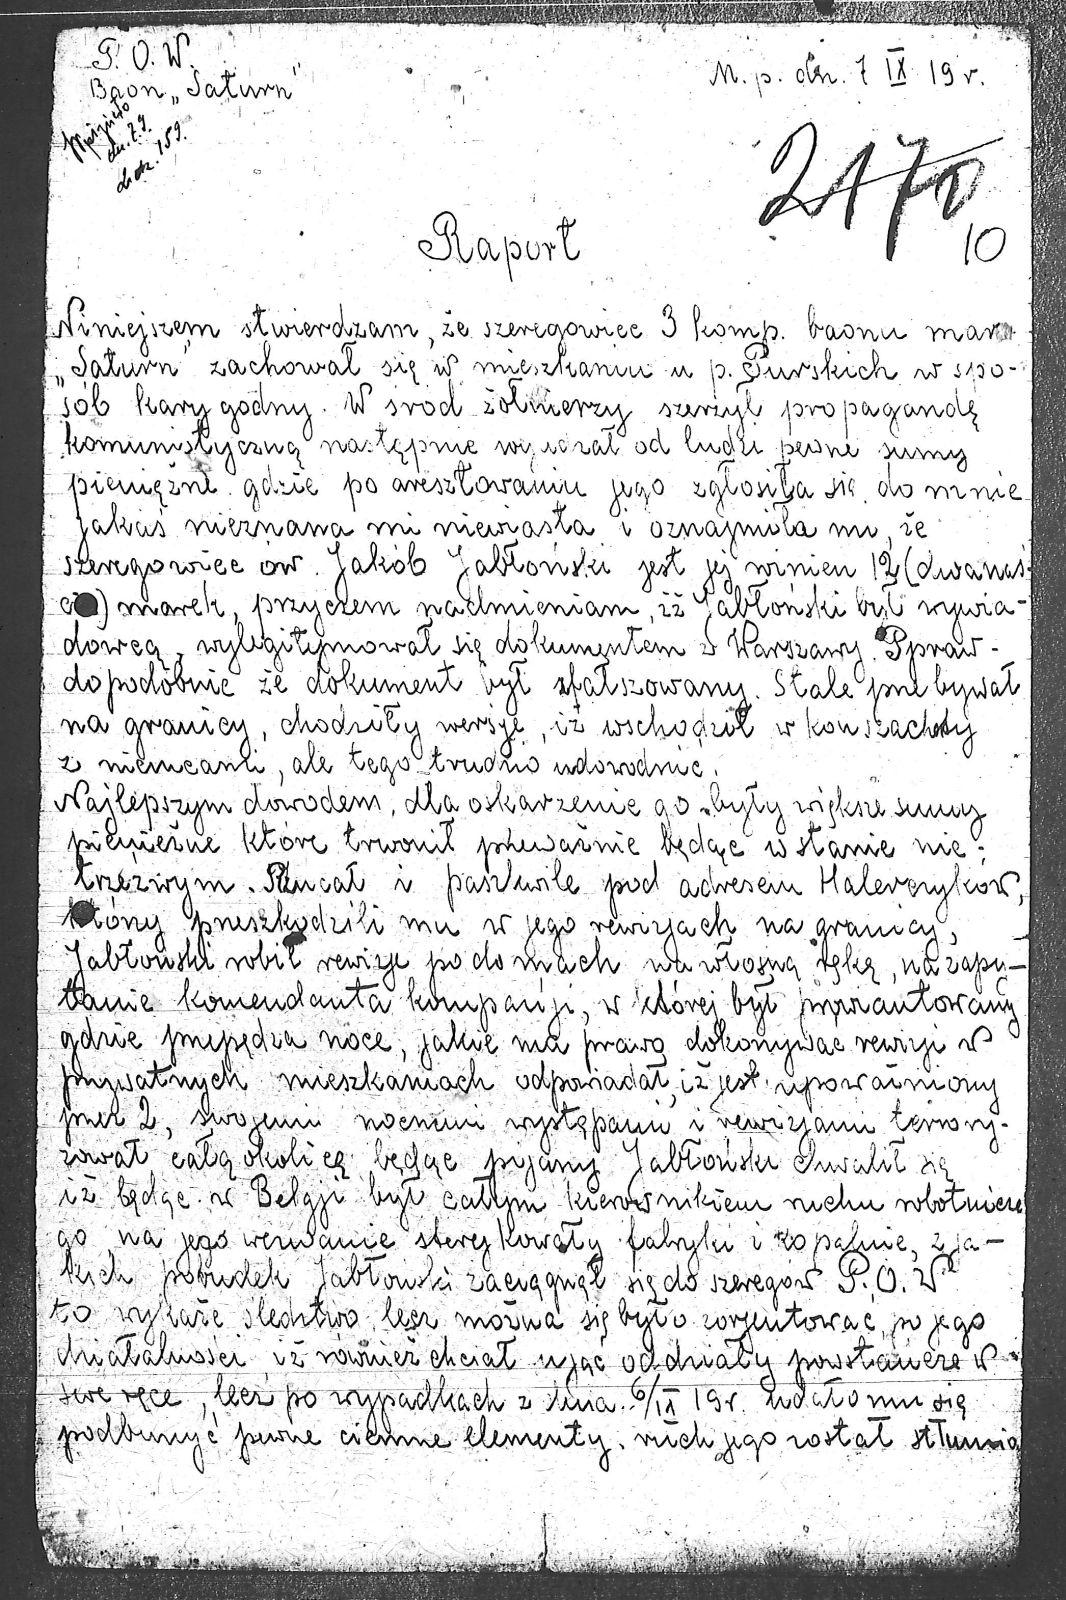 P. O. W.
Baon „Saturn"
dn. 7.9.
L. dz. 159.
M. p. dn. 7 IX 19 r.
2170
10
Raport
Niniejszem stwierdzam, że szeregowiec 3 komp. baonu mar
„Saturn" zachował się w mieszkaniu u p. Purskich w spo-
sób kary godny. W środ żołnierzy szerzył propagandę
komunistyczną następnie wyłudzał od ludzi pewne sumy
pieniężne gdzie po aresztowaniu jego zgłosiła się do mnie
jakaś nieznana mi niewiasta i oznajmiła mi, że
szeregowiec ów Jakób Jabłoński jest jej winien 12 (dwanaś-
cie) marek, przyczem nadmieniam, iż Jabłoński był wywia-
dowcą, wylegitymował się dokumentem z Warszawy. Praw-
dopodobnie że dokument był sfałszowany. Stale przebywał
na granicy, chodziły wersje, iż wschodził w konszachty
z niemcami, ale tego trudno udowodnić.
Najlepszym dowodem, dla oskarżenie go były większe sumy
pieniężne które trwonił przeważnie będąc w stanie nie-
trzeźwym. Rzucał i paszkwile pod adresem Halerczyków,
którzy przeszkodzili mu w jego rewizjach na granicy,
Jabłoński robił rewizje po domach na własną rękę, na zapy-
tanie komendanta kompanji, w której był prowiantowany
gdzie przepędza noce, jakie ma prawo dokonywać rewizji w
prywatnych mieszkaniach odpowiadał, iż jest upoważniony
przez 2, swojemi nocnemi występami i rewizjami terrory-
zował całą okolicę będąc pijany Jabłoński chwalił się
iż będąc w Belgji był całym kierownikiem ruchu robotnicze
go, na jego wezwanie sterykowały fabryki i kopalnie, z ja-
kich pobudek Jabłoński zaciągnął się do szeregów P. O. W.
to wykaże śledztwo, lecz można się było zorjentować, po jego
działalności iż również chciał ująć oddziały powstańcze w
swe ręce, lecz po wypadkach z dnia 6/IX 19 r. udało mu się
podburzyć pewne ciemne elementy. ruch jego został stłumio